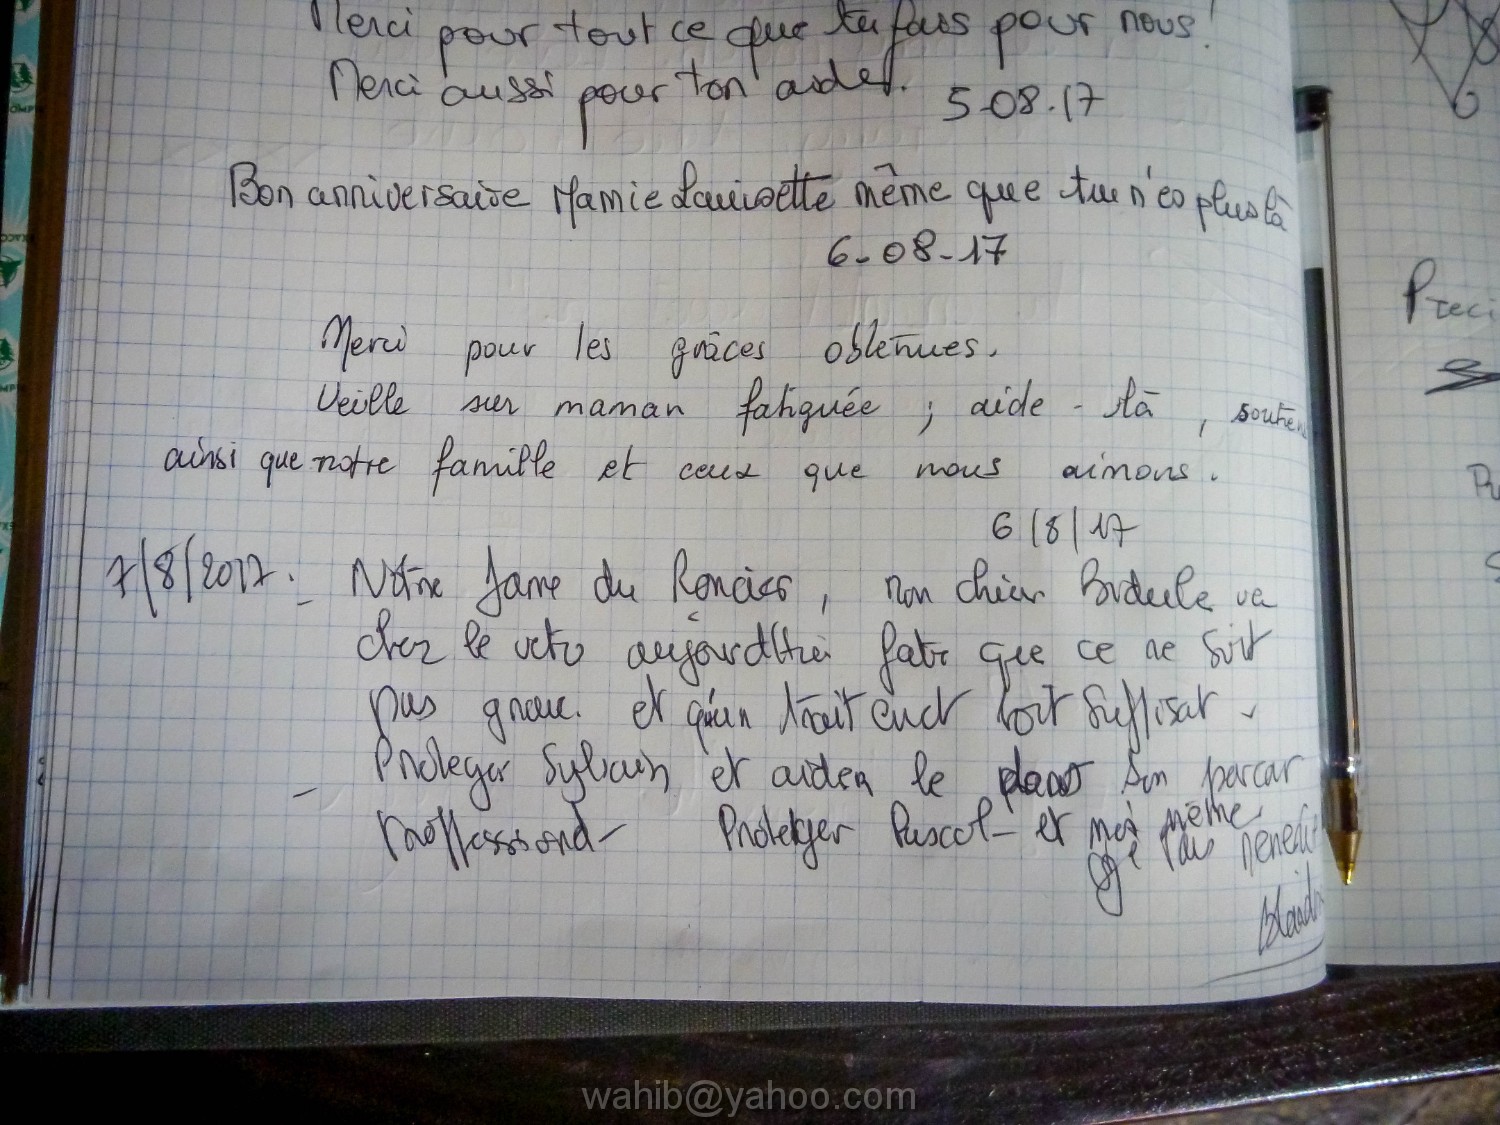 Merci pour tout ce que tu fais pour nous!
Merci aussi pour ton aide.
5-08.17
Bon anniversaire Mamie Louisette même que tu n'es plus là
6-08-17
Merci pour les grâces obtenues.
Veille sur maman fatiguée ; aide-là, soutien
ainsi que notre famille et ceux que nous aimons.
6/8/17
7/8/2017. - Notre Dame du Roncier, mon chien Bidule va
chez le veto aujourd'hui faite que ce ne soit
pas grave. et qu'un soit suffisat
- Proteger Sylvain et aider le dans son parcar
Proteger Pascal - et moi même
Preci
wahib@yahoo.com